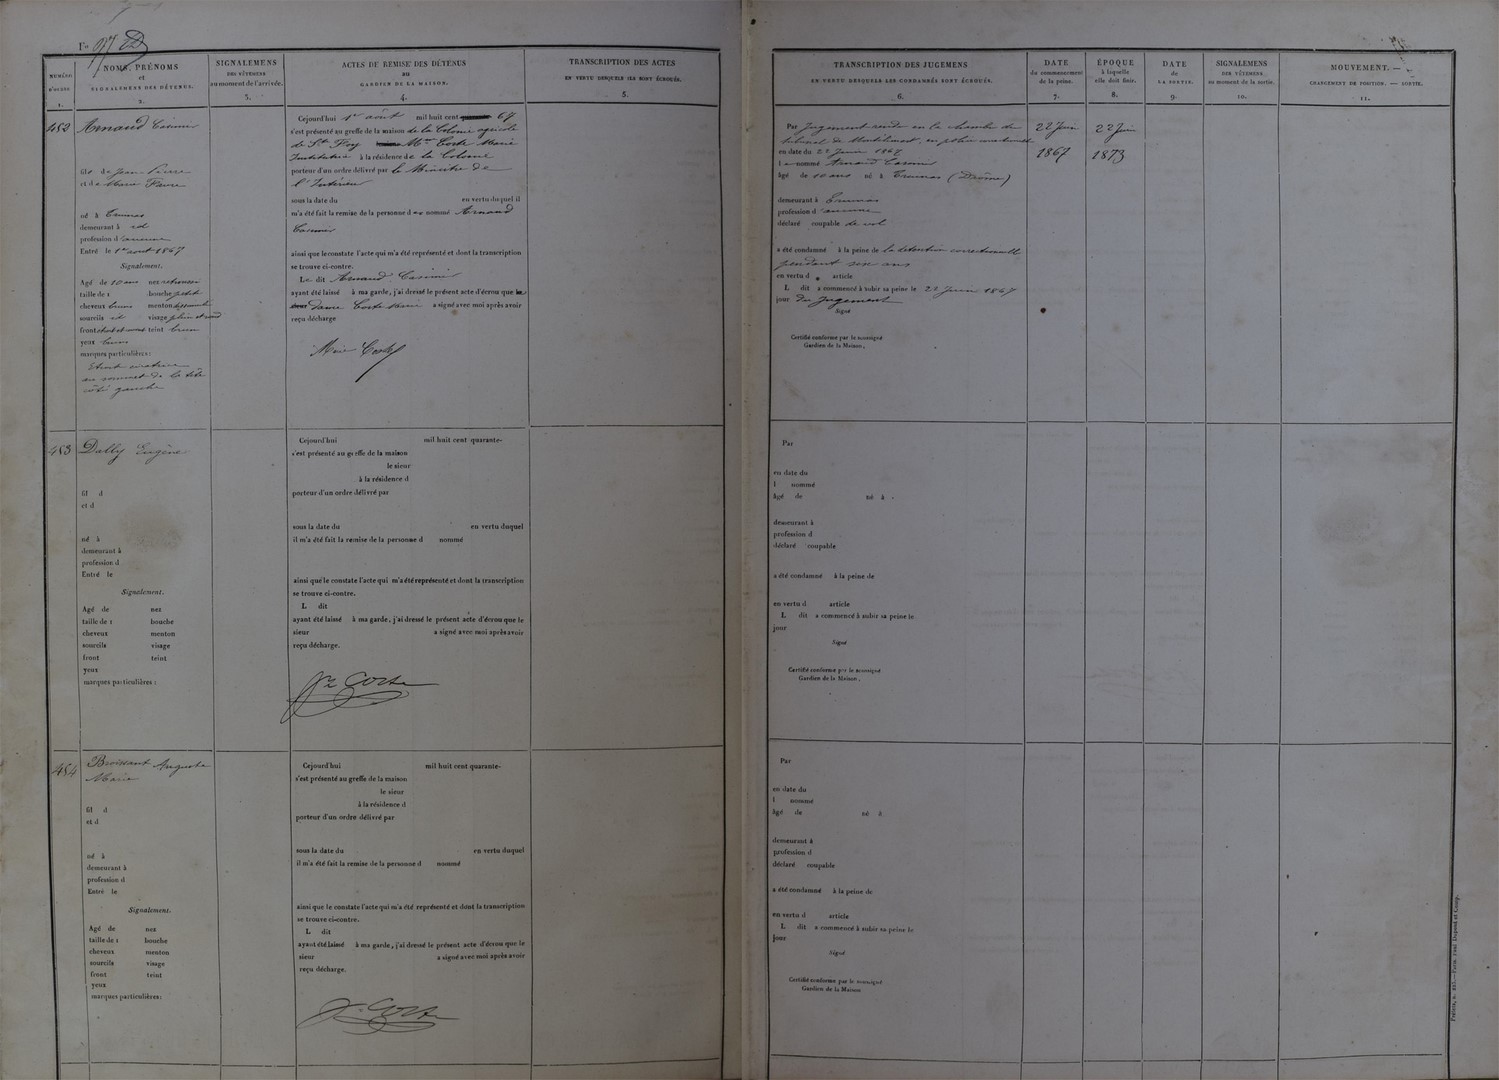 Fo 97
NUMÉRO D'ORDRE 1.
NOMS, PRÉNOMS
et
SIGNALEMENS DES DÉTENUS.
2.
SIGNALEMENS
DES VÊTEMENS
au moment de l'arrivée.
3.
ACTES DE REMISE DES DÉTENUS
au
GARDIEN DE LA MAISON.
4.
TRANSCRIPTION DES ACTES
EN VERTU DESQUELS ILS SONT ÉCROUÉS.
5.
482 Arnaud Casimir
fils de Jean Pierre
et de Marie Favre
né à Truinas
demeurant à id
profession d'aucune
Entré le 1er aout 1867
Signalement.
Agé de 10 ans nez retroussé
taille de 1 bouche petite
cheveux bruns menton
sourcils id visage plein et rond
front teint brun
yeux bruns
marques particulières :
Étant cicatrice
au sommet de la tête
côté gauche
Cejourd'hui 1er août mil huit cent 67
s'est présenté au greffe de la maison de la Colonie agricole
de Ste Foy Mme Coste Marie
Institutrice à la résidence de la Colonie
porteur d'un ordre délivré par le Ministre de
l'Intérieur
sous la date du en vertu duquel il
m'a été fait la remise de la personne d nommé Arnaud
Casimir
ainsi que le constate l'acte qui m'a été représenté et dont la transcription
se trouve ci-contre.
Le dit Arnaud Casimir
ayant été laissé à ma garde, j'ai dressé le présent acte d'écrou que la
dame Coste Marie a signé avec moi après avoir
reçu décharge
Marie Coste
483 Dally Eugène
fil d
et d
né à
demeurant à
profession d
Entré le
Signalement.
Agé de nez
taille de 1 bouche
cheveux menton
sourcils visage
front teint
yeux
marques particulières :
Cejourd'hui mil huit cent quarante-
s'est présenté au greffe de la maison
le sieur
à la résidence d
porteur d'un ordre délivré par
sous la date du en vertu duquel
il m'a été fait la remise de la personne d nommé
ainsi que le constate l'acte qui m'a été représenté et dont la transcription
se trouve ci-contre.
L dit
ayant été laissé à ma garde, j'ai dressé le présent acte d'écrou que le
sieur a signé avec moi après avoir
reçu décharge.
Coste
484 Broissant Auguste
Marie
fil d
et d
né à
demeurant à
profession d
Entré le
Signalement.
Agé de nez
taille de 1 bouche
cheveux menton
sourcils visage
front teint
yeux
marques particulières :
Cejourd'hui mil huit cent quarante-
s'est présenté au greffe de la maison
le sieur
à la résidence d
porteur d'un ordre délivré par
sous la date du en vertu duquel
il m'a été fait la remise de la personne d nommé
ainsi que le constate l'acte qui m'a été représenté et dont la transcription
se trouve ci-contre.
L dit
ayant été laissé à ma garde, j'ai dressé le présent acte d'écrou que le
sieur a signé avec moi après avoir
reçu décharge.
Coste
TRANSCRIPTION DES JUGEMENS
EN VERTU DESQUELS LES CONDAMNÉS SONT ÉCROUÉS.
6.
DATE
du commencement
de la peine.
7.
ÉPOQUE
à laquelle
elle doit finir.
8.
DATE
de
LA SORTIE.
9.
SIGNALEMENS
DES VÊTEMENS
au moment de la sortie.
10.
MOUVEMENT. —
CHANGEMENT DE POSITION. — SORTIE.
11.
Par Jugement rendu en la chambre du
tribunal de Montélimart, en police correctionnelle
en date du 22 Juin 1867
le nommé Arnaud Casimir
âgé de 10 ans né à Truinas (Drôme)
demeurant à Truinas
profession d'aucune
déclaré coupable de vol
a été condamné à la peine de la détention correctionnelle
pendant six ans
en vertu d article
L dit a commencé à subir sa peine le 22 Juin 1867
jour du Jugement
Signé
Certifié conforme par le soussigné
Gardien de la Maison,
22 Juin
1867
22 Juin
1873
Par
en date du
l nommé
âgé de né à
demeurant à
profession d
déclaré coupable
a été condamné à la peine de
en vertu d article
L dit a commencé à subir sa peine le
jour
Signé
Certifié conforme par le soussigné
Gardien de la Maison,
Par
en date du
l nommé
âgé de né à
demeurant à
profession d
déclaré coupable
a été condamné à la peine de
en vertu d article
L dit a commencé à subir sa peine le
jour
Signé
Certifié conforme par le soussigné
Gardien de la Maison